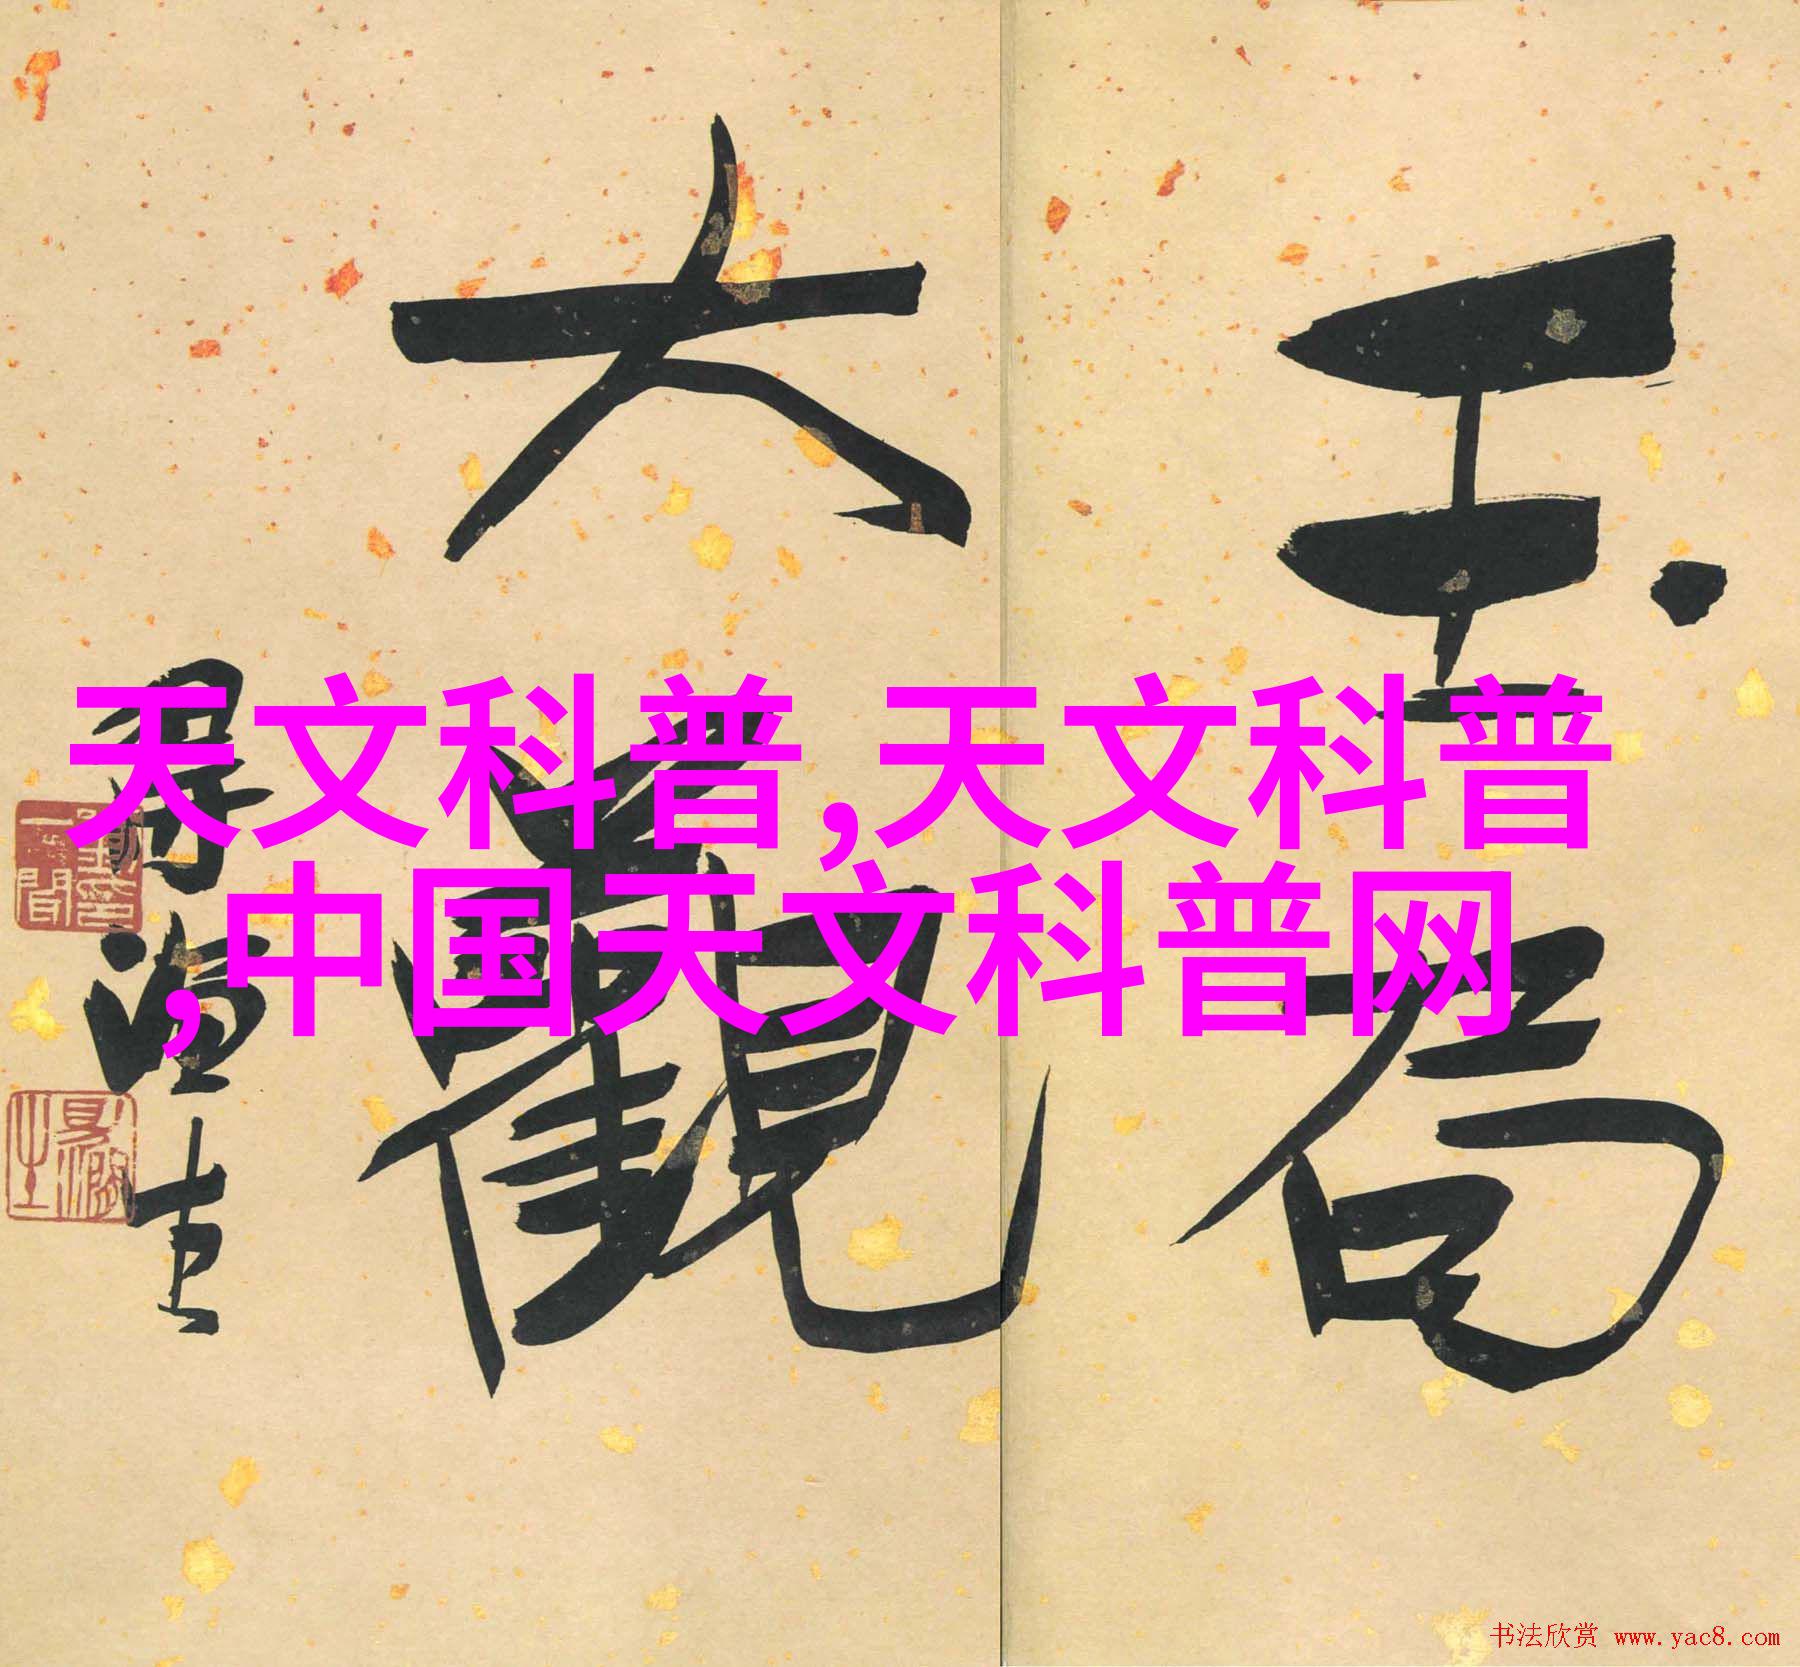 玉局
大觀
天文科普,天文科普
,中国天文科普网
书法欣赏 www.yac8.com